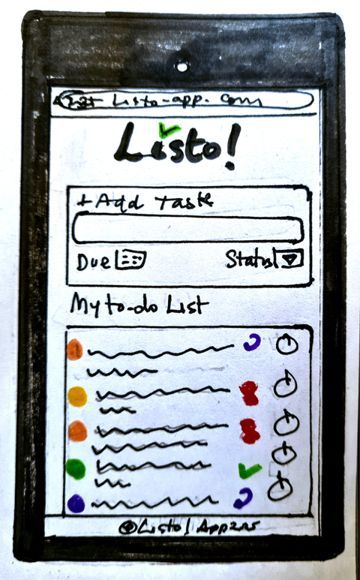 Listo-app.com
Listo!
+Add Task
Due Status
My to-do List
@Listo!